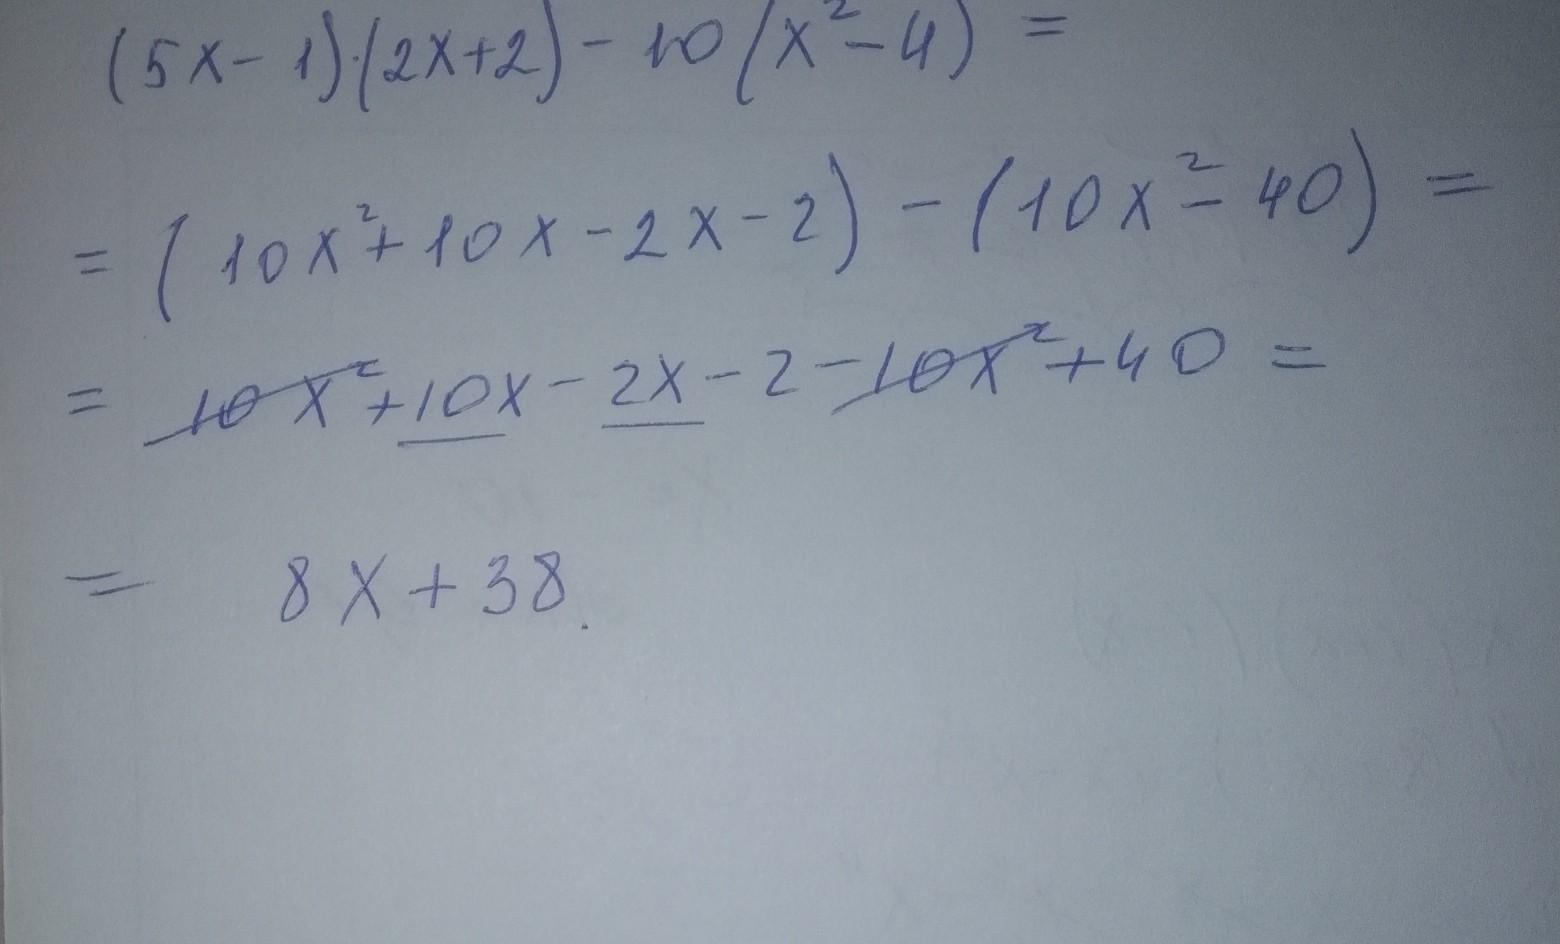 (5x-1)·(2x+2) - 10(x²-4) =
= (10x²+10x-2x-2) - (10x²-40) =
= 10x²+10x-2x-2-10x²+40 =
= 8x+38.